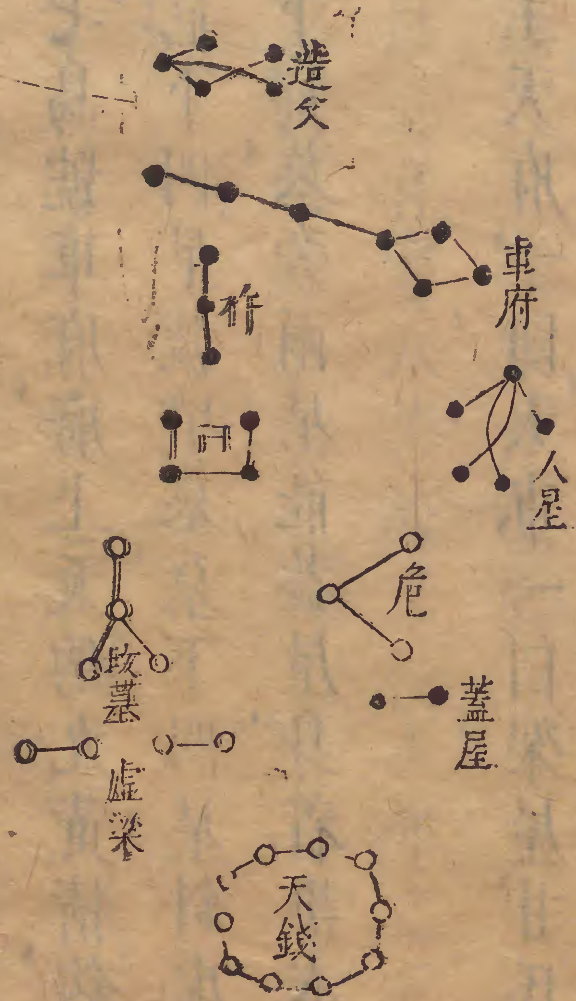 造父
車府
杵
臼
人星
危
墳墓
蓋屋
虛梁
天錢